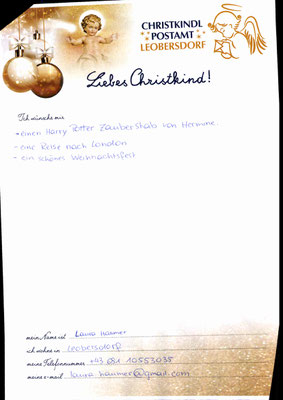 CHRISTKINDL
POSTAMT
LEOBERSDORF
Liebes Christkind!
Ich wünsche mir
- einen Harry Potter Zauberstab von Hermine
- eine Reise nach London
- ein schönes Weihnachtsfest
mein Name ist Laura Hammer
ich wohne in Leobersdorf
meine Telefonnummer +43 681 10553038
meine e-mail laura.hammer@gmail.com